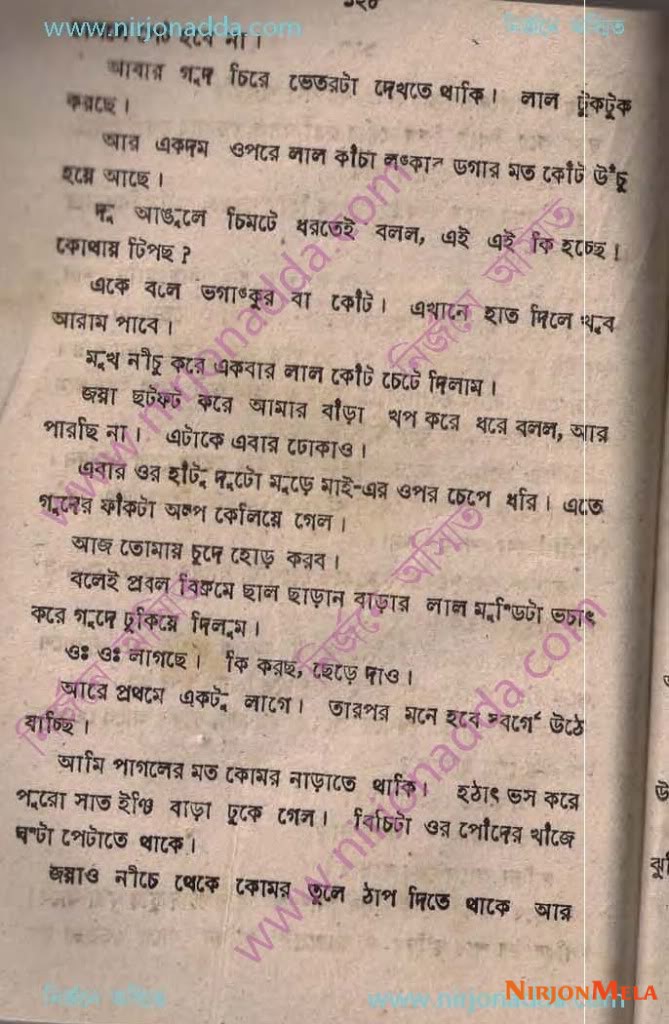 www.nirjonadda.com নির্জনে অস্মিত
১২০
হবে না।
আবার গুদ চিরে ভেতরটা দেখতে থাকি। লাল টুকটুক
করছে।
আর একদম ওপরে লাল কাঁচা লঙ্কার ডগার মত কোঁট উঁচু
হয়ে আছে।
দু আঙুলে চিমটে ধরতেই বলল, এই এই কি হচ্ছে।
কোথায় টিপছ?
একে বলে ভগাঙ্কুর বা কোঁট। এখানে হাত দিলে খুব
আরাম পাবে।
মুখ নীচু করে একবার লাল কোঁট চেটে দিলাম।
জয়া ছটফট করে আমার বাঁড়া খপ করে ধরে বলল, আর
পারছি না। এটাকে এবার ঢোকাও।
এবার ওর হাঁটু দুটো মুড়ে মাই-এর ওপর চেপে ধরি। এতে
গুদের ফাঁকটা অল্প কেলিয়ে গেল।
আজ তোমায় চুদে হোড় করব।
বলেই প্রবল বিক্রমে ছাল ছাড়ান বাড়ার লাল মুণ্ডিটা ভচাৎ
করে গুদে ঢুকিয়ে দিলুম।
ওঃ ওঃ লাগছে। কি করছ, ছেড়ে দাও।
আরে প্রথমে একটু লাগে। তারপর মনে হবে স্বর্গে উঠে
যাচ্ছি।
আমি পাগলের মত কোমর নাড়াতে থাকি। হঠাৎ ভস করে
পুরো সাত ইঞ্চি বাড়া ঢুকে গেল। বিচিটা ওর পোঁদের খাঁজে
ঘণ্টা পেটাতে থাকে।
জয়াও নীচে থেকে কোমর তুলে ঠাপ দিতে থাকে আর
উ
ঝু
www.nirjonadda.com
নির্জনে অস্মিত
www.nirjonadda.com
নির্জনে অস্মিত
www.nirjonadda.com
নির্জনে অস্মিত www.nirjonadda.com
NIRJONMELA